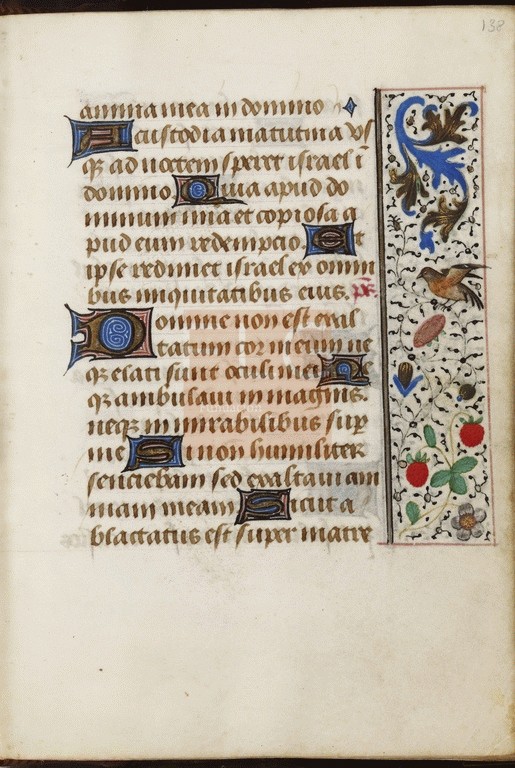 138
anima mea in domino
A custodia matutina vsq̄
q̄ ad noctem speret israel ī
domino. Quia apud do
minum mīa et copiosa a
pud eum redempcio. Et
ipse redimet israel ex omni
bus iniquitatibus eius. ps̄
Domine non est exal
tatum cor meum ne
q̄ elati sunt oculi mei. Ne
q̄ ambulaui in magnis.
neq̄ in mirabilibus sup̄
me Si non humiliter
senciebam sed exaltaui am
mam meam Sicut a
blactatus est super matre